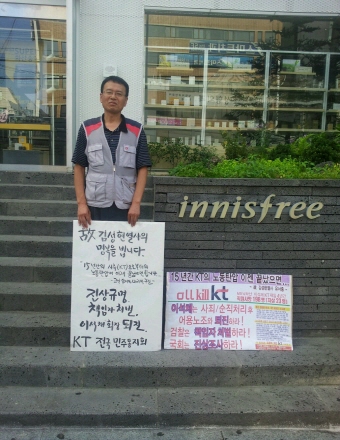 innisfree
故 김성현열사의
명복을 빕니다.
진상규명
책임자처벌
이석채 회장 퇴진
KT 전국 민주동지회
15년간 KT의 노동탄압 이젠 끝났으면...
all kill kt
이석채는 사퇴/순직처리후
어용노조와 퇴진하라!
검찰은 책임자 처벌하라!
국회는 진상조사하라!